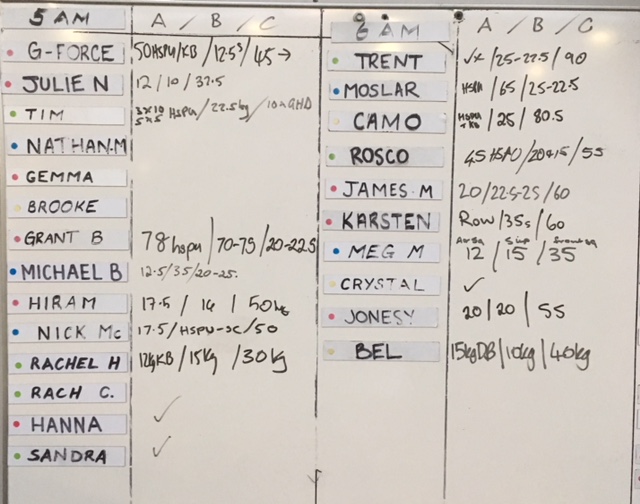 5 AM A / B / C
G-FORCE 50HSPU/KB / 12.5's / 45 →
JULIE N 12 / 10 / 37.5
TIM 3x10 5x5 HSPU / 22.5kg / 10xGHD
NATHAN.M
GEMMA
BROOKE
GRANT B 78 hspu / 70-75 / 20-22.5
MICHAEL B 12.5/35/20-25.
HIRAM 17.5 / 16 / 50kg
NICK Mc 17.5/HSPU-SC/50
RACHEL H 12kgKB / 15kg / 30kg
RACH C.
HANNA ✓
SANDRA ✓
6 AM A / B / C
TRENT /25-22.5 / 90
MOSLAR HSPU / 65 / 25-22.5
CAMO HSPU + KB / 25 / 80.5
ROSCO 45 HSPU /20+15 / 55
JAMES M 20/22.5-25/60
KARSTEN ROW /35s / 60
MEG M 12 / 15 / 35
CRYSTAL ✓
JONESY 20 / 20 / 55
BEL 15kgDB / 10kg / 40kg